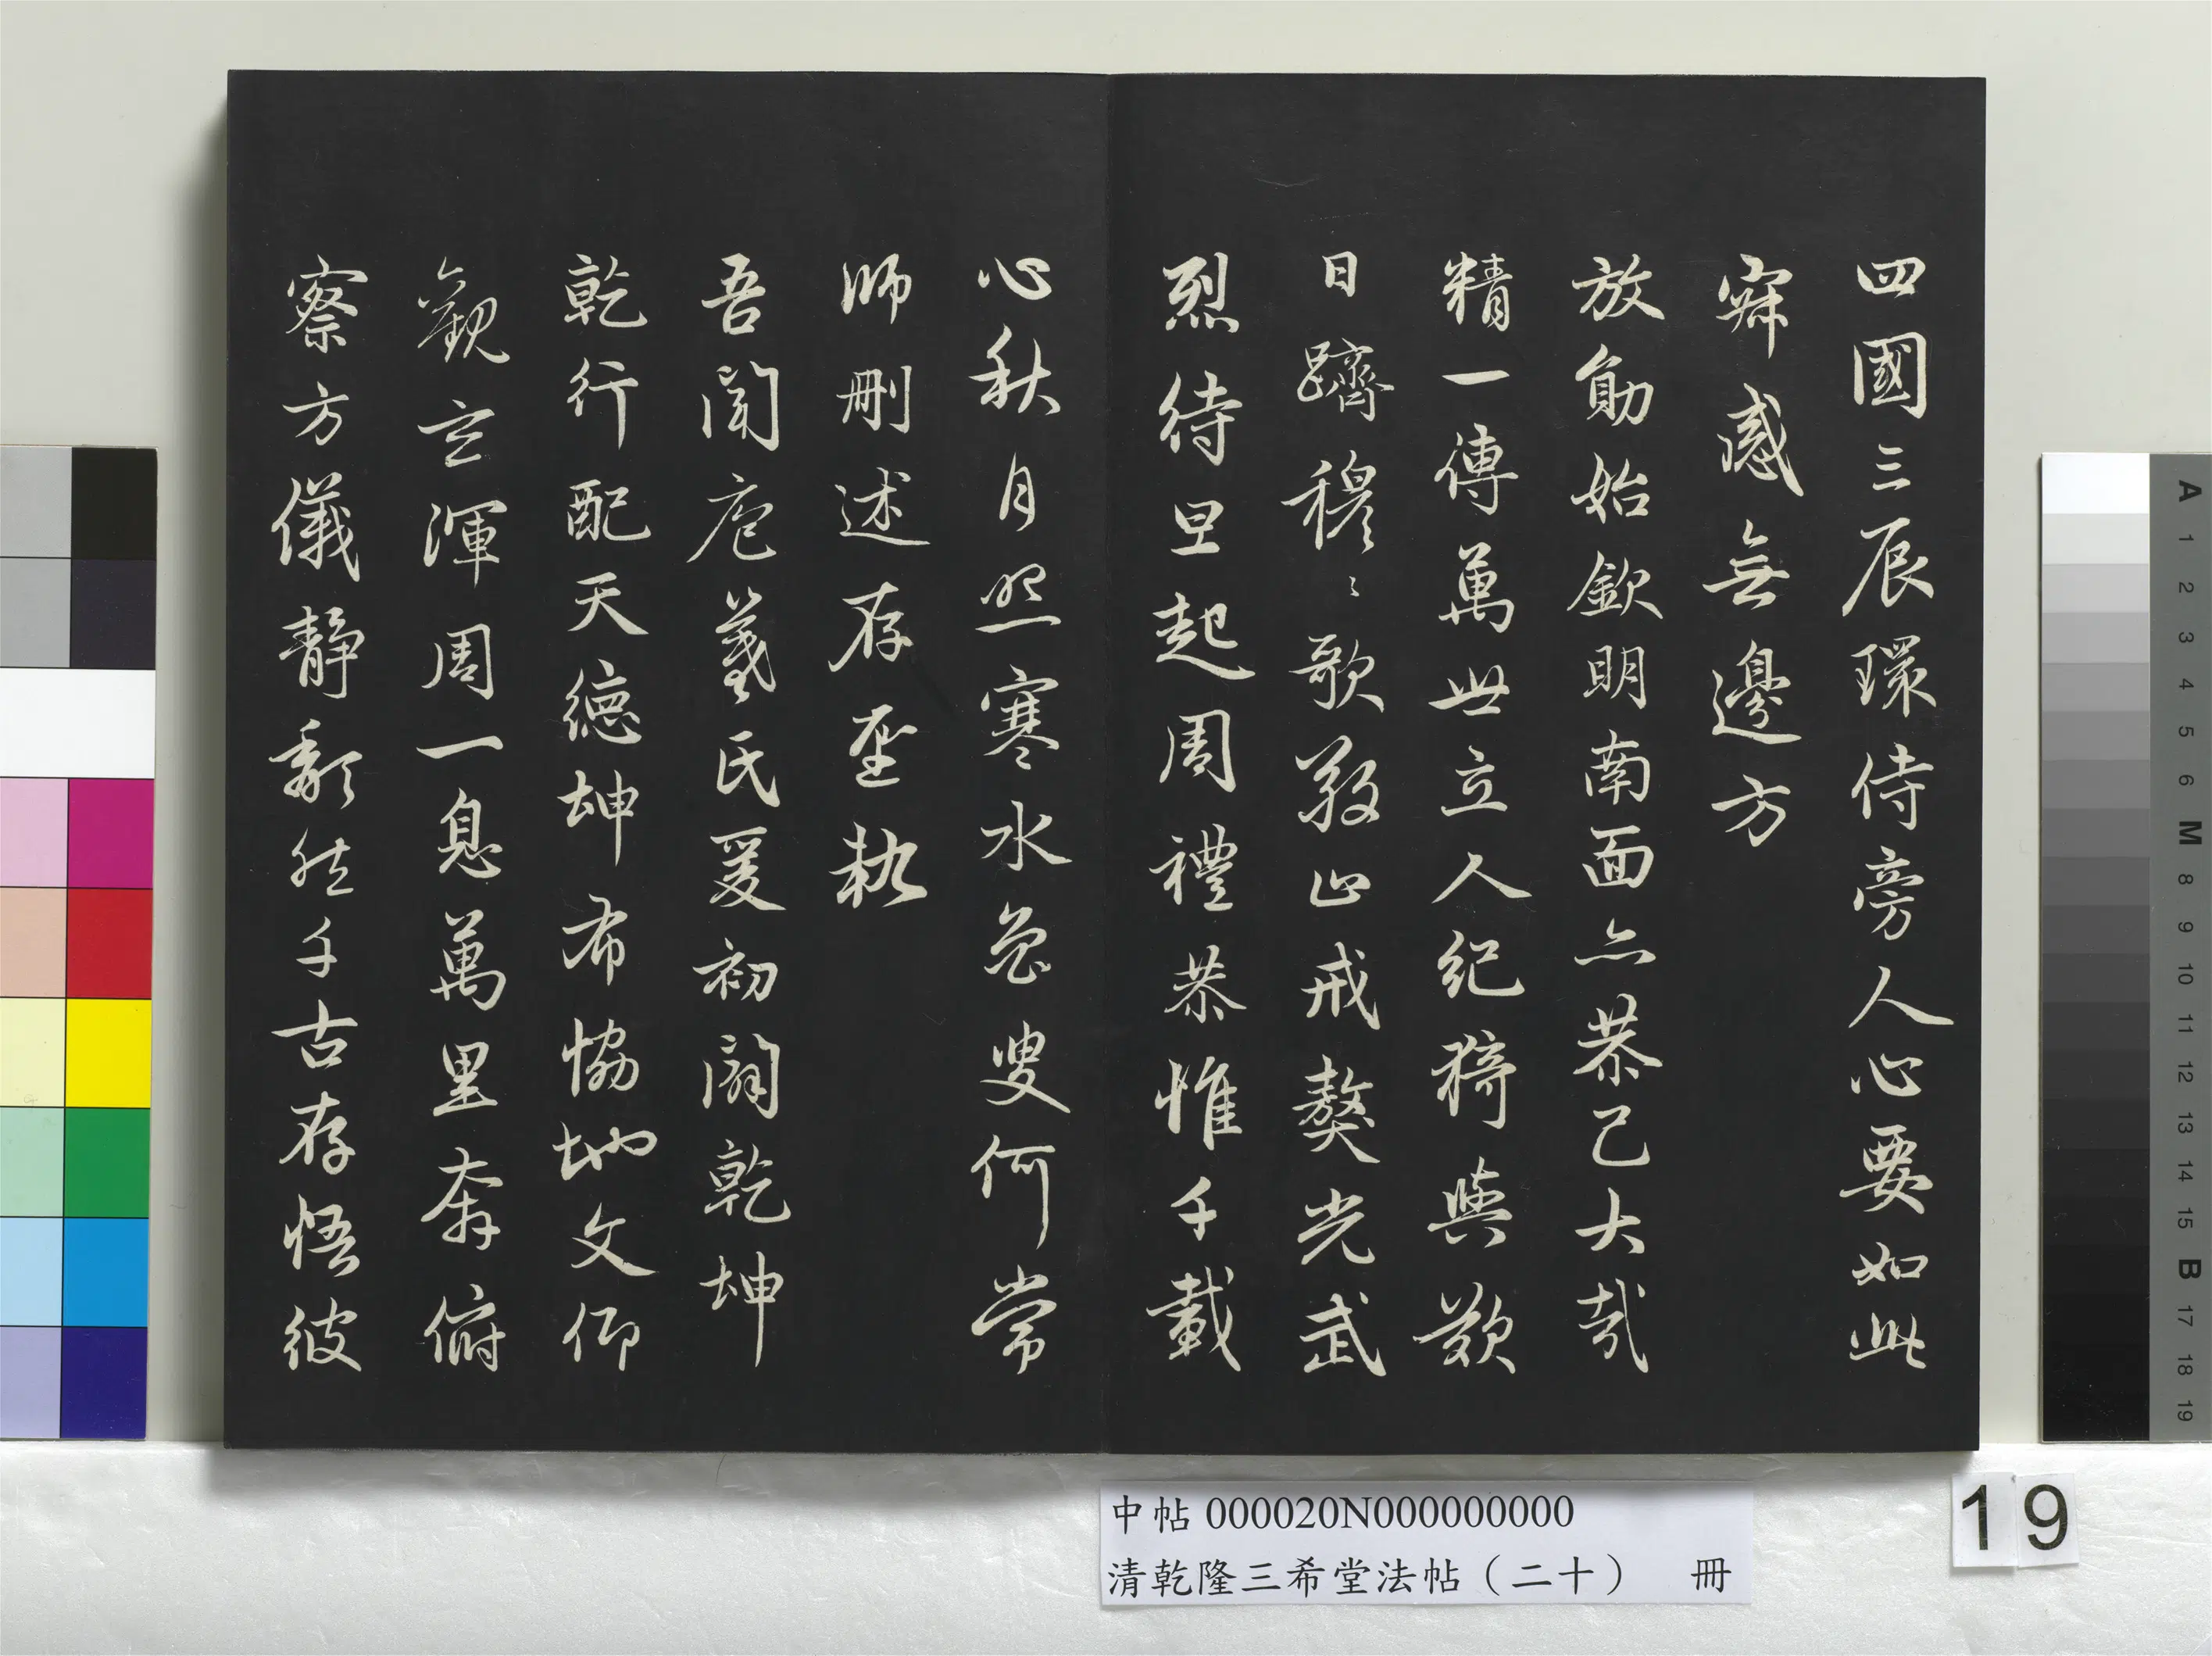 四國三辰環侍旁人心要如此
寂感無邊方
放勛始欽明南面亦恭己大哉
精一傳萬世立人紀猗與歎
日躋穆〻歌敬止戒獒光武
烈待旦起周禮恭惟千載
心秋月照寒水魯叟何常
師刪述存聖軌
吾聞庖羲氏爰初闢乾坤
乾行配天德坤布協地文仰
觀玄渾周一息萬里奔俯
察方儀靜頹然千古存悟彼
中帖 000020N000000000
清乾隆三希堂法帖（二十） 冊
19
A 1 2 3 4 5 6 M 8 9 10 11 12 13 14 15 B 17 18 19